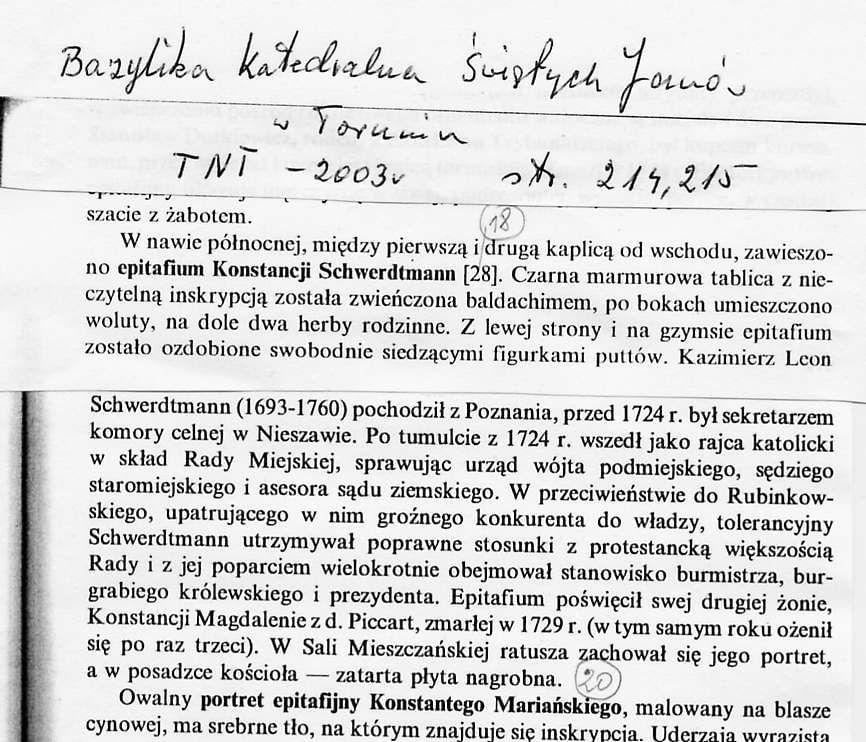 Bazylika Katedralna Świętych Janów
Toruniu
TNT - 2003r str. 214, 215
szacie z żabotem.
18
W nawie północnej, między pierwszą i drugą kaplicą od wschodu, zawieszo-
no epitafium Konstancji Schwerdtmann [28]. Czarna marmurowa tablica z nie-
czytelną inskrypcją została zwieńczona baldachimem, po bokach umieszczono
woluty, na dole dwa herby rodzinne. Z lewej strony i na gzymsie epitafium
zostało ozdobione swobodnie siedzącymi figurkami puttów. Kazimierz Leon
Schwerdtmann (1693-1760) pochodził z Poznania, przed 1724 r. był sekretarzem
komory celnej w Nieszawie. Po tumulcie z 1724 r. wszedł jako rajca katolicki
w skład Rady Miejskiej, sprawując urząd wójta podmiejskiego, sędziego
staromiejskiego i asesora sądu ziemskiego. W przeciwieństwie do Rubinkow-
skiego, upatrującego w nim groźnego konkurenta do władzy, tolerancyjny
Schwerdtmann utrzymywał poprawne stosunki z protestancką większością
Rady i z jej poparciem wielokrotnie obejmował stanowisko burmistrza, bur-
grabiego królewskiego i prezydenta. Epitafium poświęcił swej drugiej żonie,
Konstancji Magdalenie z d. Piccart, zmarłej w 1729 r. (w tym samym roku ożenił
się po raz trzeci). W Sali Mieszczańskiej ratusza zachował się jego portret,
a w posadzce kościoła — zatarta płyta nagrobna. 20
Owalny portret epitafijny Konstantego Mariańskiego, malowany na blasze
cynowej, ma srebrne tło, na którym znajduje się inskrypcja. Uderzają wyrazista